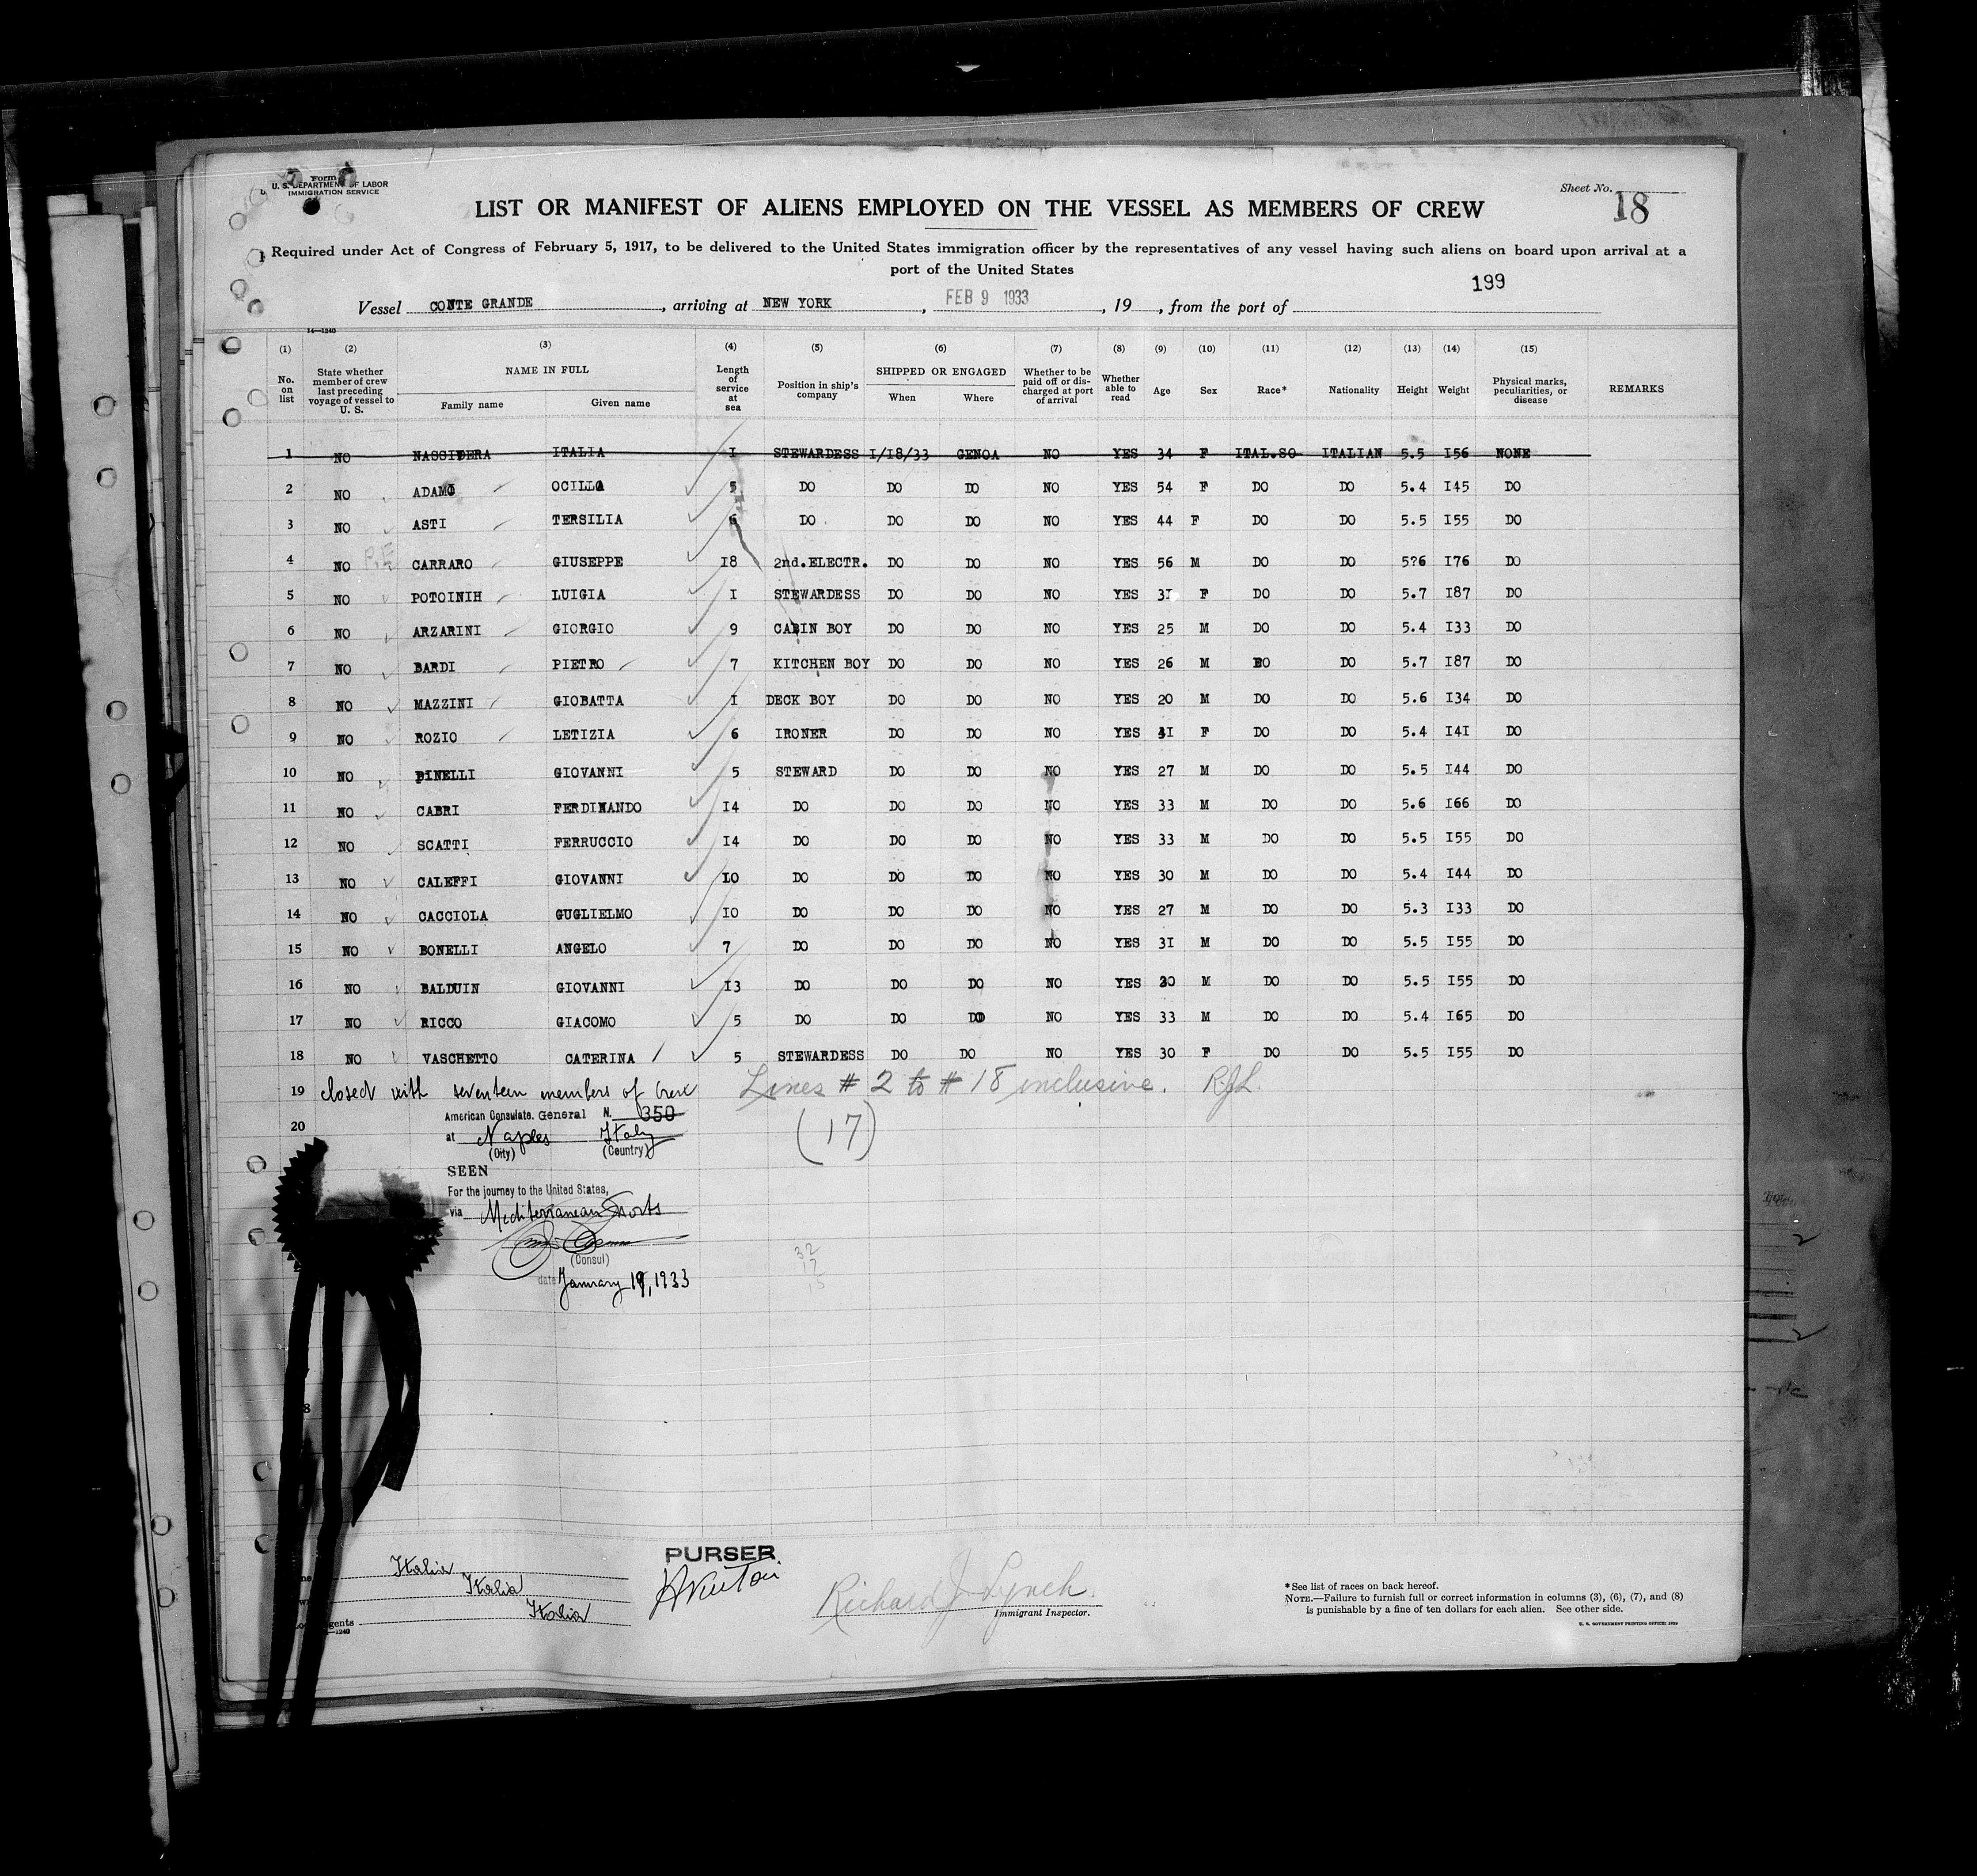 Form
U. S. DEPARTMENT OF LABOR
IMMIGRATION SERVICE
Sheet No.
18
LIST OR MANIFEST OF ALIENS EMPLOYED ON THE VESSEL AS MEMBERS OF CREW
Required under Act of Congress of February 5, 1917, to be delivered to the United States immigration officer by the representatives of any vessel having such aliens on board upon arrival at a
port of the United States
199
Vessel CONTE GRANDE, arriving at NEW YORK, FEB 9 1933, 19, from the port of
14—1240
(1) (2) (3) (4) (5) (6) (7) (8) (9) (10) (11) (12) (13) (14) (15)
No. on list State whether member of crew last preceding voyage of vessel to U. S. NAME IN FULL Family name Given name Length of service at sea Position in ship's company SHIPPED OR ENGAGED When Where Whether to be paid off or discharged at port of arrival Whether able to read Age Sex Race* Nationality Height Weight Physical marks, peculiarities, or disease REMARKS
1 NO NASSIDERA ITALIA I STEWARDESS I/I8/33 GENOA NO YES 34 F ITAL.SO ITALIAN 5.5 I56 NONE
2 NO ADAMO OCILLA 5 DO DO DO NO YES 54 F DO DO 5.4 I45 DO
3 NO ASTI TERSILIA 6 DO DO DO NO YES 44 F DO DO 5.5 I55 DO
4 NO P.E CARRARO GIUSEPPE I8 2nd.ELECTR. DO DO NO YES 56 M DO DO 5?6 I76 DO
5 NO POTOINIH LUIGIA I STEWARDESS DO DO NO YES 3I F DO DO 5.7 I87 DO
6 NO ARZARINI GIORGIO 9 CABIN BOY DO DO NO YES 25 M DO DO 5.4 I33 DO
7 NO BARDI PIETRO 7 KITCHEN BOY DO DO NO YES 26 M DO DO 5.7 I87 DO
8 NO MAZZINI GIOBATTA I DECK BOY DO DO NO YES 20 M DO DO 5.6 I34 DO
9 NO ROZIO LETIZIA 6 IRONER DO DO NO YES F DO DO 5.4 I4I DO
10 NO PINELLI GIOVANNI 5 STEWARD DO DO NO YES 27 M DO DO 5.5 I44 DO
11 NO CABRI FERDINANDO I4 DO DO DO NO YES 33 M DO DO 5.6 I66 DO
12 NO SCATTI FERRUCCIO I4 DO DO DO NO YES 33 M DO DO 5.5 I55 DO
13 NO CALEFFI GIOVANNI IO DO DO DO NO YES 30 M DO DO 5.4 I44 DO
14 NO CACCIOLA GUGLIELMO IO DO DO DO NO YES 27 M DO DO 5.3 I33 DO
15 NO BONELLI ANGELO 7 DO DO DO NO YES 3I M DO DO 5.5 I55 DO
16 NO BALDUIN GIOVANNI I3 DO DO DO NO YES 30 M DO DO 5.5 I55 DO
17 NO RICCO GIACOMO 5 DO DO DO NO YES 33 M DO DO 5.4 I65 DO
18 NO VASCHETTO CATERINA 5 STEWARDESS DO DO NO YES 30 F DO DO 5.5 I55 DO
19 closed with seventeen members of Crew Lines # 2 to # 18 inclusive. R.J.L.
American Consulate. General N. 350
20 at Naples Italy (17)
(City) (Country)
SEEN
For the journey to the United States,
via Mediterranean Ports
(Consul)
date January 19, 1933
32
17
15
8
PURSER
Italia
Italia
Italia
Richard J Lynch
Immigrant Inspector.
agents
—1240
*See list of races on back hereof.
NOTE.—Failure to furnish full or correct information in columns (3), (6), (7), and (8)
is punishable by a fine of ten dollars for each alien. See other side.
U. S. GOVERNMENT PRINTING OFFICE: 1929